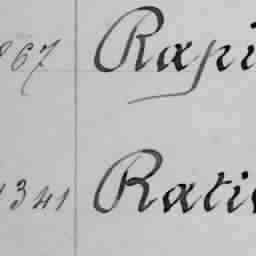 867 Rapi
1341 Ratio